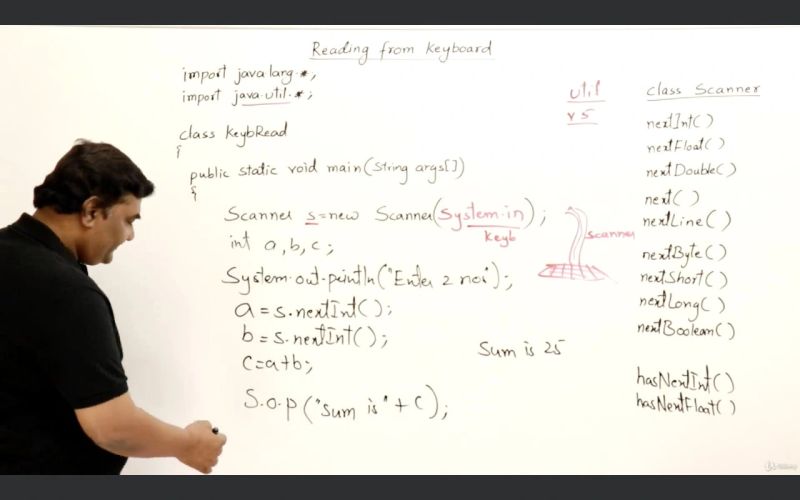 Reading from Keyboard
import java.lang.*;
import java.util.*;
class KeybRead
{
public static void main(String args[])
{
Scanner s=new Scanner(System.in);
keyb
int a,b,c;
System.out.println("Enter 2 nos");
a=s.nextInt();
b=s.nextInt();
c=a+b;
S.o.p("Sum is"+C);
Sum is 25
util
v5
scanner
class Scanner
nextInt()
nextFloat()
nextDouble()
next()
nextLine()
nextByte()
nextShort()
nextLong()
nextBoolean()
hasNextInt()
hasNextFloat()